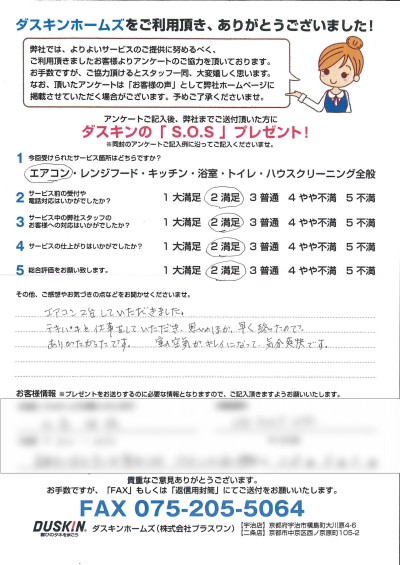 ダスキンホームズをご利用頂き、ありがとうございました!
弊社では、よりよいサービスのご提供に努めるべく、
ご利用頂きましたお客様よりアンケートのご協力を頂いております。
お手数ですが、ご協力頂けるとスタッフ一同、大変嬉しく思います。
なお、頂いたアンケートは「お客様の声」として弊社ホームページに
掲載させていただく場合がございます。予めご了承くださいませ。
アンケートご記入後、弊社までご送付頂いた方に
ダスキンの「S.O.S」プレゼント!
※同封のアンケートご記入例に沿ってご記入くださいませ。
1 今回受けられたサービス箇所はどちらですか?
エアコン・レンジフード・キッチン・浴室・トイレ・ハウスクリーニング全般
2 サービス前の受付や
電話対応はいかがでしたか?
1 大満足 2 満足 3 普通 4 やや不満 5 不満
3 サービス中の弊社スタッフの
お客様への対応はいかがでしたか?
1 大満足 2 満足 3 普通 4 やや不満 5 不満
4 サービスの仕上がりはいかがでしたか?
1 大満足 2 満足 3 普通 4 やや不満 5 不満
5 総合評価をお願い致します。
1 大満足 2 満足 3 普通 4 やや不満 5 不満
その他、ご感想やお気づきの点などをお聞かせくださいませ。
エアコン2台していただきました。
テキパキと仕事をしていただき、思いのほか、早く終ったので
ありがたかったです。 室の空気がキレイになって、気分爽快です。
お客様情報 ※プレゼントをお送りするのに必要な情報となりますので、ご記入頂きますようお願いいたします。
貴重なご意見ありがとうございます。
お手数ですが、「FAX」もしくは「返信用封筒」にてご送付をお願いいたします。
FAX 075-205-5064
DUSKIN
喜びのタネをまこう
ダスキンホームズ(株式会社プラスワン)
【宇治店】京都府宇治市槇島町大川原4-6
【二条店】京都市中京区西ノ京原町105-2